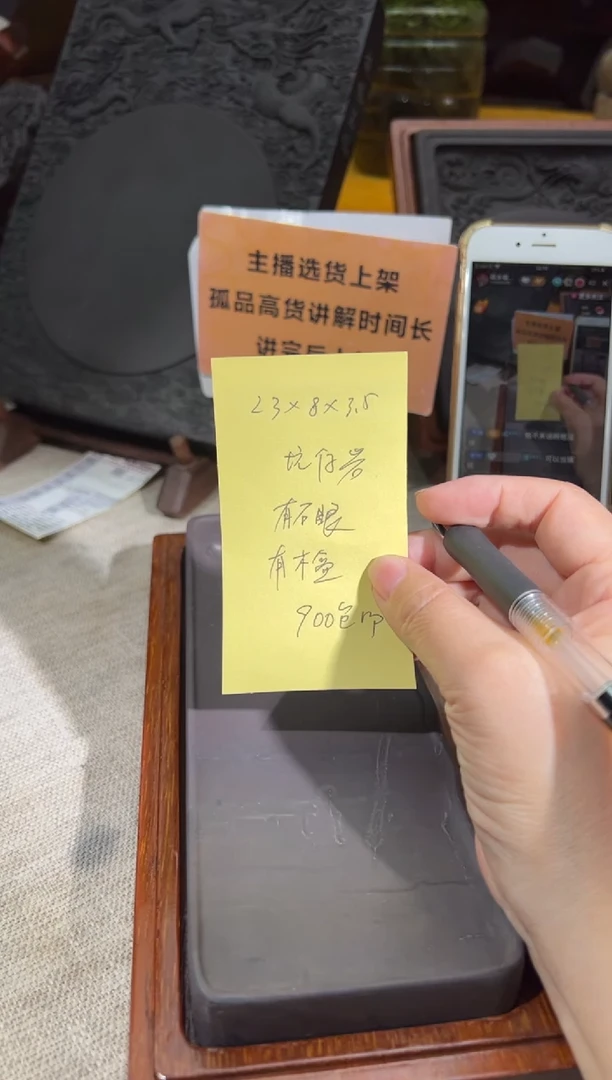 主播选货上架
孤品高货讲解时间长
23×8×3.5
坑仔岩
有石眼
有木盒
900包邮